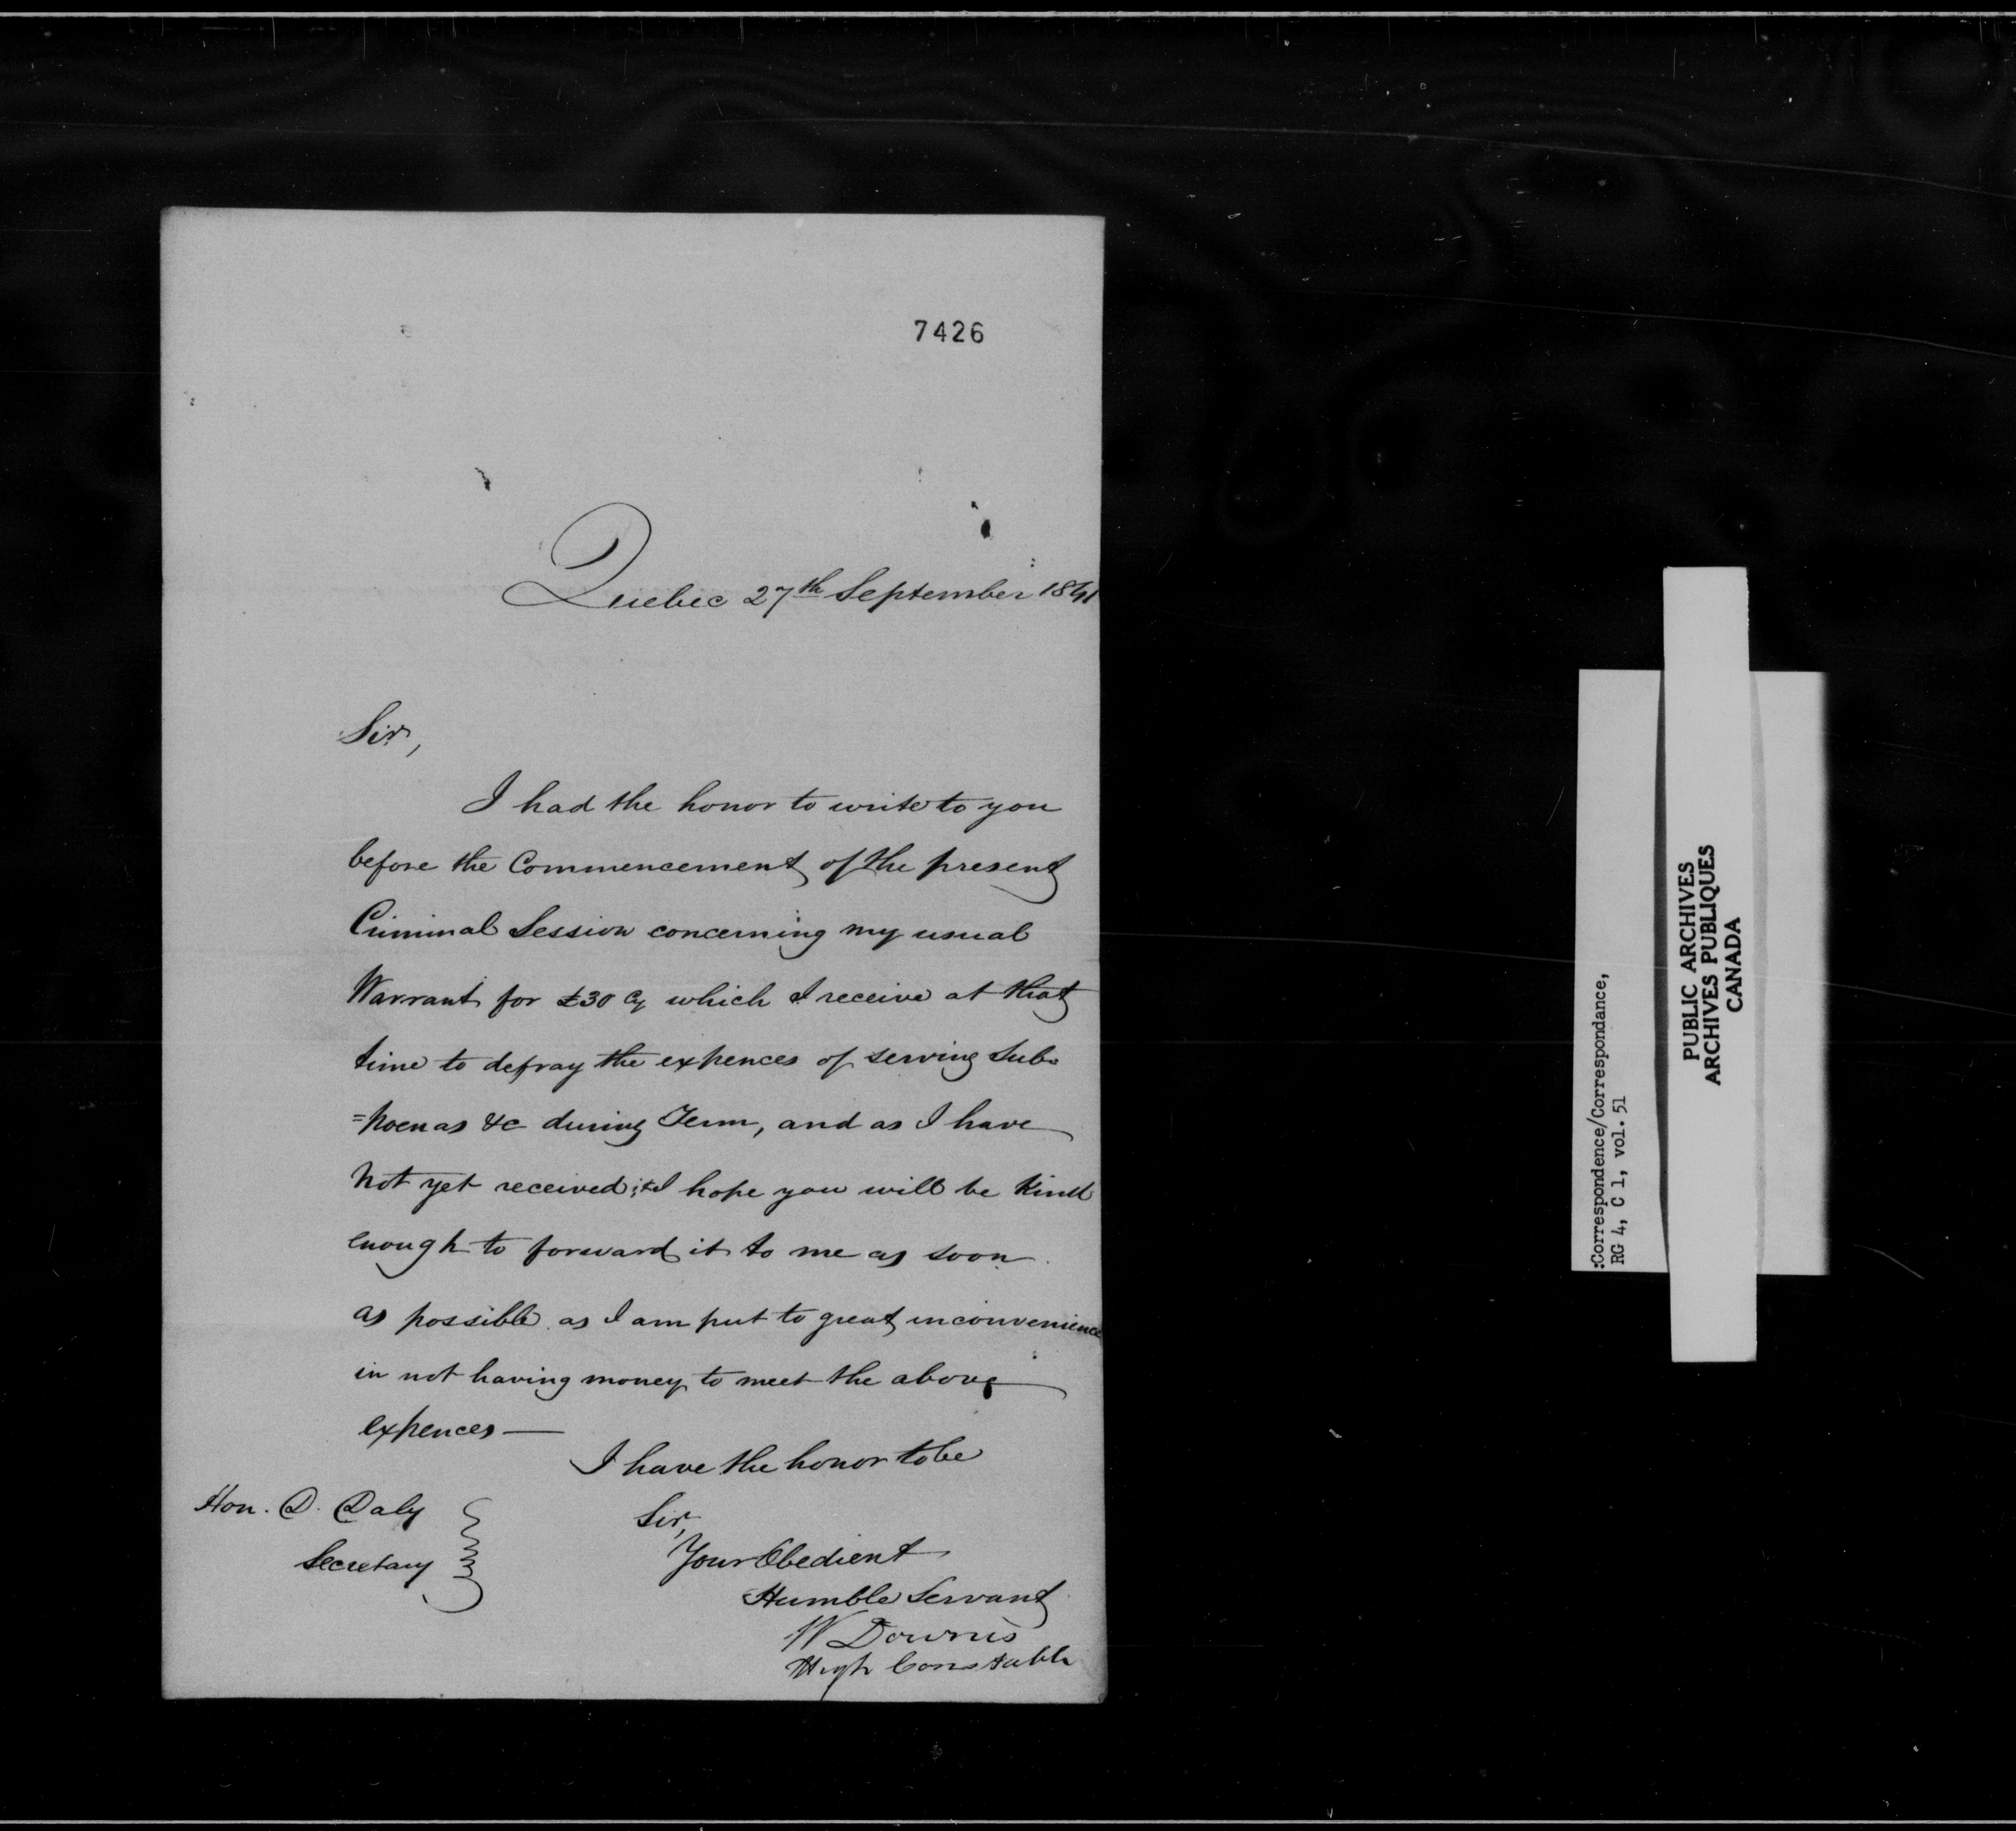 7426
Quebec 27th September 1841
Sir,
I had the honor to write to you
before the Commencement of the present
Criminal Session concerning my usual
Warrant for £30 Cy which I receive at that
time to defray the expences of serving Sub=
=poenas &c during Term, and as I have
not yet received it I hope you will be kind
enough to forward it to me as soon
as possible as I am put to great inconvenience
in not having money to meet the above
expences—
I have the honor to be
Sir,
Your Obedient
Humble Servant
W Downes
High Constable
Hon. D. Daly
Secretary
:Correspondence/Correspondance,
RG 4, C 1, vol. 51
PUBLIC ARCHIVES
ARCHIVES PUBLIQUES
CANADA